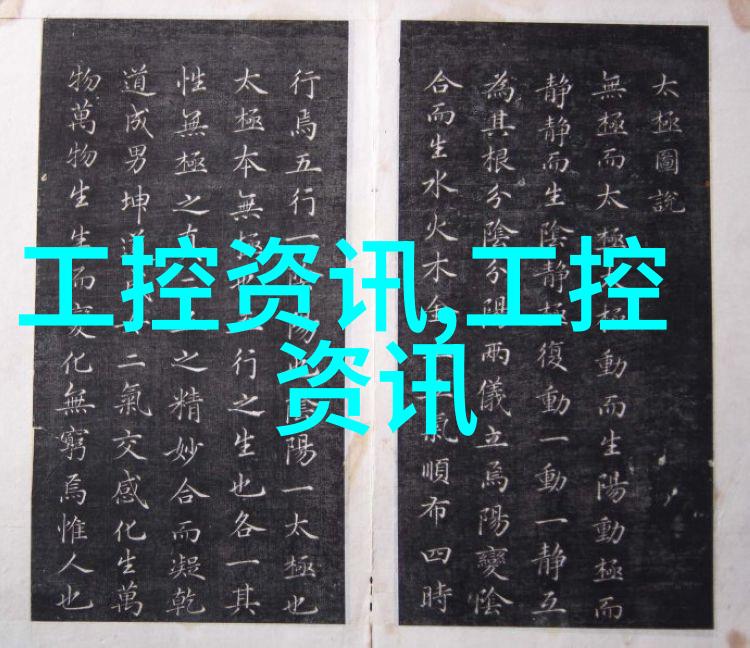 工控资讯,工控
资讯
太極圖說
無極而太極太極動而生陽動極而
静静而生陰静極復動一動一静互
為其根分陰分陽兩儀立焉陽變陰
合而生水火木金氣順布四時
行焉五行一陰陽也陰陽一太極也
太極本無極也行之生也各一其
性無極之真之精妙合而凝乾
道成男坤道成二氣交感化生萬
物萬物生生而變化無窮焉惟人也